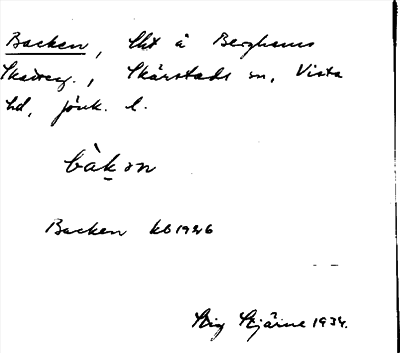 Backen, Lht å Berghems
Skatteg., Skärstads sn, Vista
hd, Jönk. l.
bàkən
Backen kb 1926
Stig Stjärne 1934.